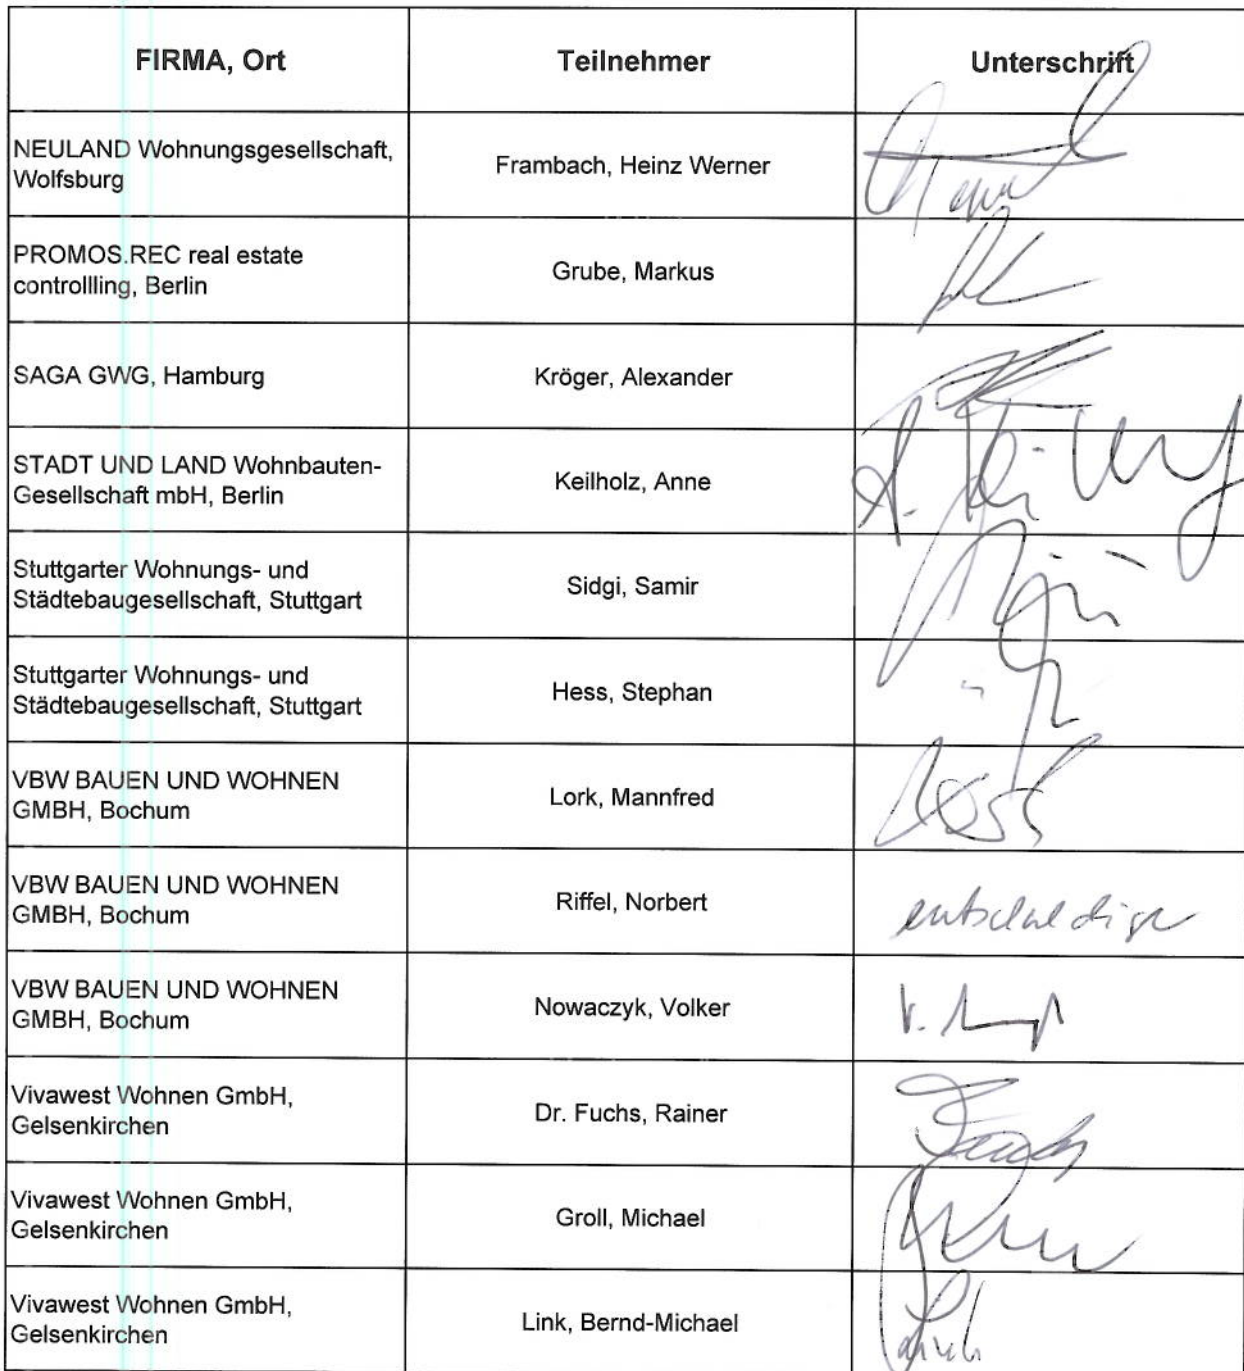 FIRMA, Ort
Teilnehmer
Unterschrift
NEULAND Wohnungsgesellschaft,
Wolfsburg
Frambach, Heinz Werner
PROMOS.REC real estate
controllling, Berlin
Grube, Markus
SAGA GWG, Hamburg
Kröger, Alexander
STADT UND LAND Wohnbauten-
Gesellschaft mbH, Berlin
Keilholz, Anne
Stuttgarter Wohnungs- und
Städtebaugesellschaft, Stuttgart
Sidgi, Samir
Stuttgarter Wohnungs- und
Städtebaugesellschaft, Stuttgart
Hess, Stephan
VBW BAUEN UND WOHNEN
GMBH, Bochum
Lork, Mannfred
VBW BAUEN UND WOHNEN
GMBH, Bochum
Riffel, Norbert
VBW BAUEN UND WOHNEN
GMBH, Bochum
Nowaczyk, Volker
Vivawest Wohnen GmbH,
Gelsenkirchen
Dr. Fuchs, Rainer
Vivawest Wohnen GmbH,
Gelsenkirchen
Groll, Michael
Vivawest Wohnen GmbH,
Gelsenkirchen
Link, Bernd-Michael